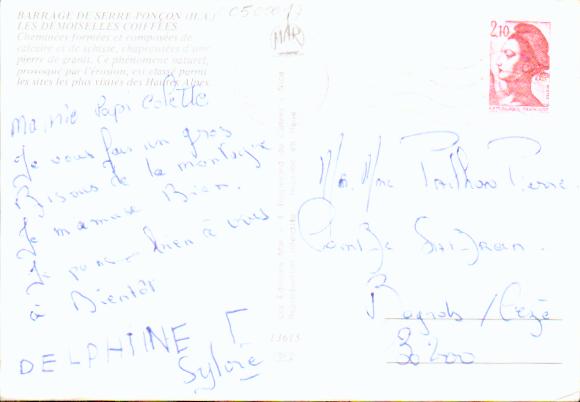 BARRAGE DE SERRE-PONÇON (H.A.)
LES DEMOISELLES COIFFÉES
Cheminées formées et composées de
calcaire et de schiste, chapeautées d'une
pierre de granit. Ce phénomène naturel,
provoqué par l'érosion, est classé parmi
les sites les plus visités des Hautes Alpes
MAR
2,10
Mamie Papi Colette
Je vous fais un gros
Bisous de la montagne
Je m'amuse Bien.
Je pense bien à vous
à Bientôt
DELPHINE T
Sylvie
13615
Mr. Mme Pierre
Bagnols/Cèze
30200